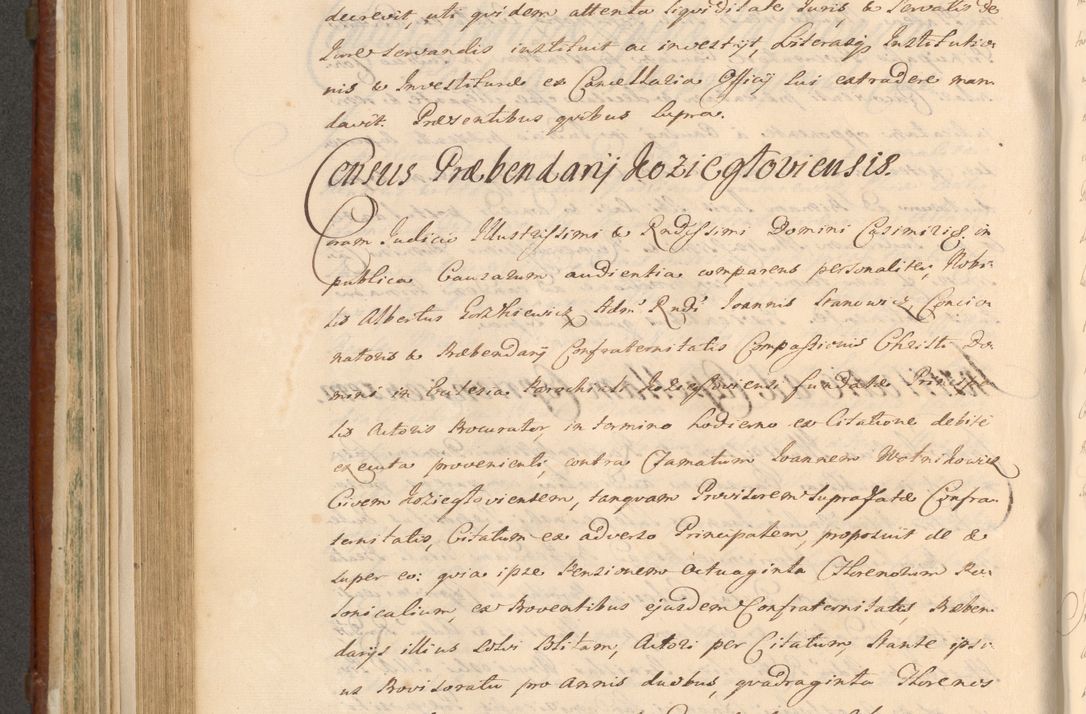 decrevit, uti quidem attenta liquiditate Iuris, & servatis de
Jure servandis instituit ac investijt, Literasq̃ Institutio-
nis & Investituræ ex Cancellaria Officij sui extradere man-
davit. Præsentibus quibus supra.
Census Præbendarij Koziegłoviensis.
Coram Judicio Illustrissimi & Rndissimi Domini Casimiri &. in
publica Causarum audientia comparens personaliter, Nobi-
lis Albertus Gorzkiewicz Adm. Rndi Ioannis Stanowicz, Concion
natoris & Præbendarij Confraternitatis Compassionis Christi Do-
mini in Ecclesia Parochiali Koziegłoviensi fundatæ Principa-
lis Actoris Procurator, in termino hodierno ex Citatione debitè
executa provenienti, contra Famatum Ioannem Wotnikowicz
Civem Kozieglovientem, tanquam Provisorem suprafatæ Confra-
ternitatis, Citatum ex adverso Principalem, proposuit de &
super eo: quia ipse Pensionem Octuaginta Florenorum Po-
lonicalium, ex Proventibus ejusdem Confraternitatis, Præben-
darijs illius solvi solitam, Actori per Citatum stante ipsi-
us Provisoratu pro Annis duobus, quadraginta Florenos